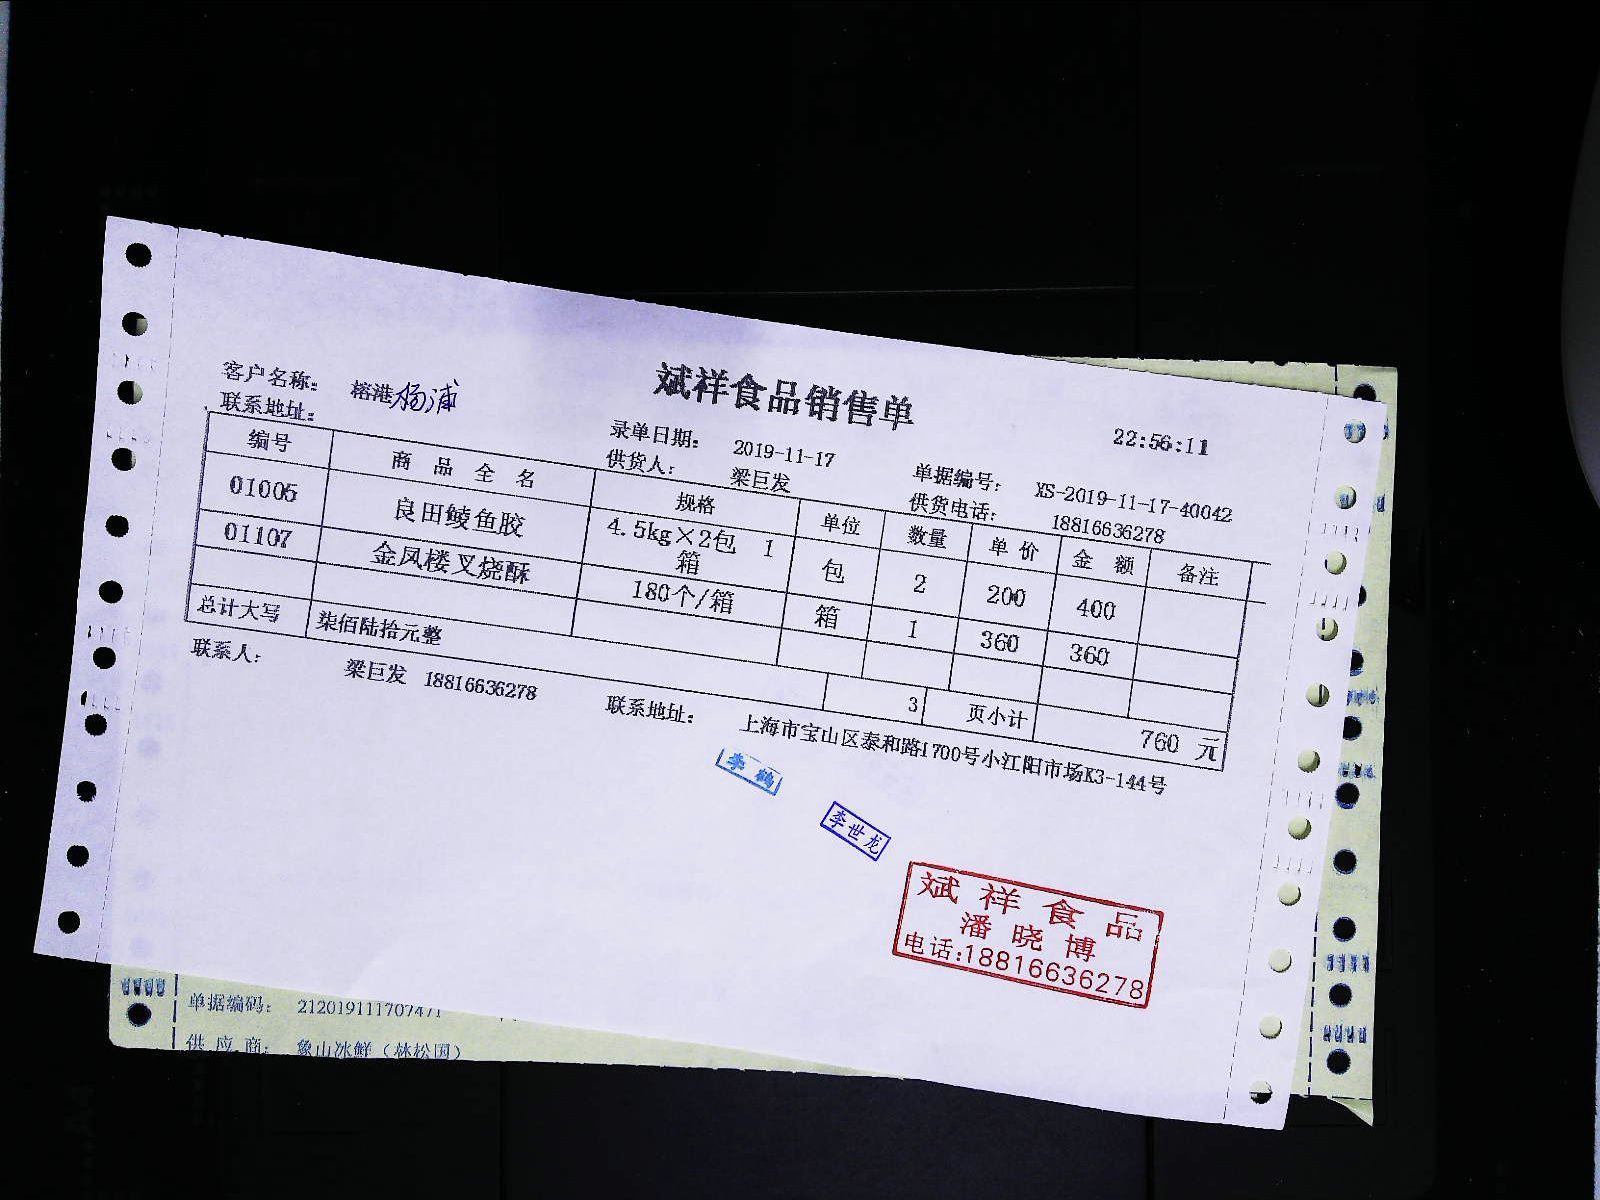 斌祥食品销售单
22:56:11
客户名称： 榕港杨浦
联系地址：
录单日期： 2019-11-17 单据编号： XS-2019-11-17-40042
供货人： 梁巨发 供货电话： 18816636278
编号 商品全名 规格 单位 数量 单价 金额 备注
01005 良田鲮鱼胶 4.5kg×2包 1箱 包 2 200 400
01107 金凤楼叉烧酥 180个/箱 箱 1 360 360
总计大写 柒佰陆拾元整 3 页小计 760 元
联系人： 梁巨发 18816636278 联系地址： 上海市宝山区泰和路1700号小江阳市场K3-144号
李鹤
李世龙
斌祥食品
潘晓博
电话:18816636278
单据编码： 212019111707471
供应商： 象山冰鲜（林松国）